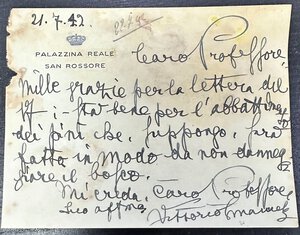 21.7.42.
PALAZZINA REALE
SAN ROSSORE
Caro Professore,
Mille grazie per la lettera del
17; - sta bene per l'abbattim
dei pini che, suppongo, sarà
fatta in modo da non danneg
giare il bosco.
Mi creda, Caro Professore,
suo affmo
Vittorio Emanuele